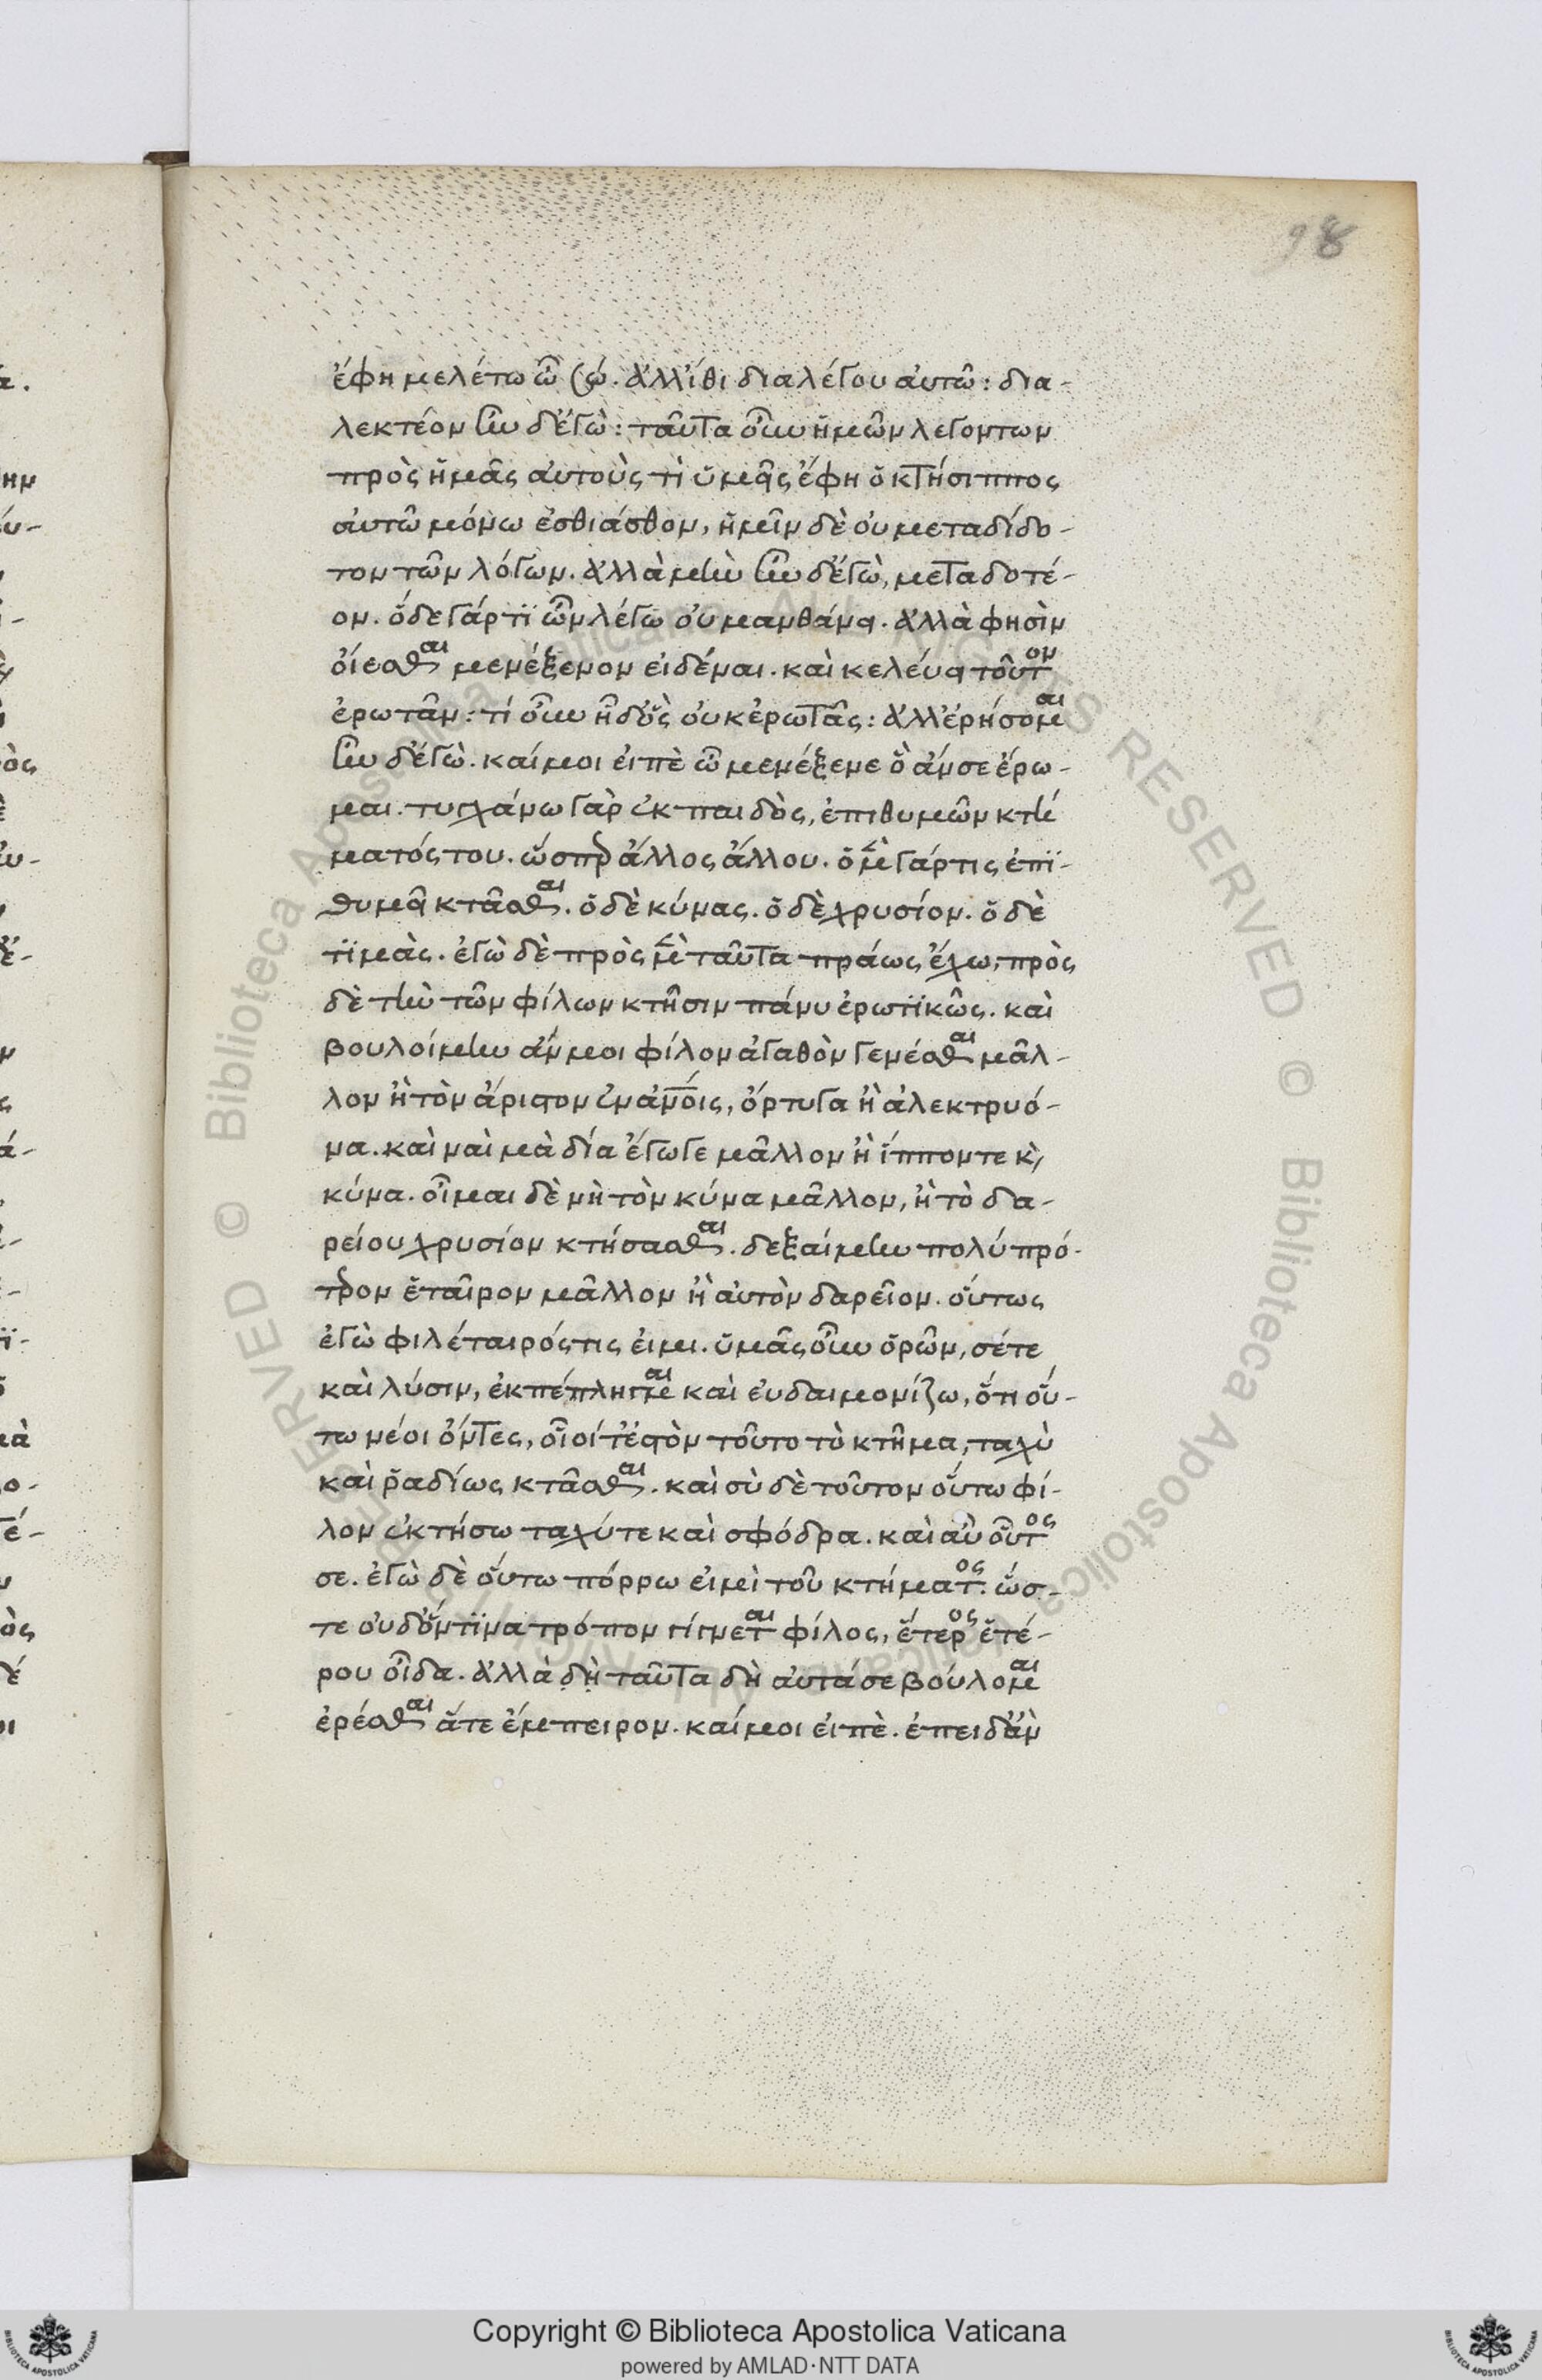 98
ἔφη μελέτω ὦ σώ. ἀλλ' ἴθι διαλέγου αὐτῶ: δια-
λεκτέον ἦν δ' ἐγὼ: ταῦτα οὖν ἡμῶν λεγοντων
πρὸς ἡμᾶς αὐτοὺς τὶ ὑμεῖς ἔφη ὁ κτήσιππος
αὐτῶ μόνω ἑσθιάσθον, ἡμῖν δὲ οὐ μεταδίδο-
τον τῶν λόγων. ἀλλὰ μὴν ἦν δ' ἐγὼ, μεταδοτέ-
ον. ὅδε γάρ τι ὧν λέγω οὐ μανθάνει. ἀλλὰ φησὶν
οἴεσθαι μενέξενον εἰδέναι. καὶ κελέυει τοῦτον
ἐρωτᾶν: τί οὖν ἦ δ' ὃς οὐκ ἐρωτᾶς: ἀλλ' ἐρήσομαι
ἦν δ' ἐγὼ. καί μοι εἰπὲ ὦ μενέξενε ὃ ἄν σε ἔρω-
μαι. τυγχάνω γὰρ ἐκ παιδὸς, ἐπιθυμῶν κτή
ματός του. ὥσπερ ἄλλος ἄλλου. ὁ μὲν γάρ τις ἐπϊ-
θυμεῖ κτᾶσθαι. ὁ δὲ κύνας. ὁ δὲ χρυσίον. ὁ δὲ
τϊμὰς. ἐγὼ δὲ πρὸς μὲν ταῦτα πράως ἔχω, πρὸς
δὲ τὴν τῶν φίλων κτῆσιν πάνυ ἐρωτϊκῶς. καὶ
βουλοίμην ἄν μοι φίλον ἀγαθὸν γενέσθαι μᾶλ-
λον ἢ τὸν ἄριστον ἐν ἀνοις, ὄρτυγα ἢ ἀλεκτρυό-
να. καὶ ναὶ μὰ δία ἔγωγε μᾶλλον ἢ ἵππον τε κ
κύνα. οἶμαι δὲ νὴ τὸν κύνα μᾶλλον, ἢ τὸ δα-
ρείου χρυσίον κτήσασθαι. δεξαίμην πολύ πρό-
τερον ἑταῖρον μᾶλλον ἢ αὐτὸν δαρεῖον. οὕτως
ἐγὼ φιλέταιρός τις εἰμι. ὑμᾶς οὖν ὁρῶν, σέ τε
καὶ λύσιν, ἐκπέπληγμαι καὶ εὐδαιμονίζω, ὅτι οὕ-
τω νέοι ὄντες, οἷοί τ' ἐστὸν τοῦτο τὸ κτῆμα, ταχὺ
καὶ ῥαδίως κτᾶσθαι. καὶ σὺ δὲ τοῦτον οὕτω φί-
λον ἐκτήσω ταχύ τε καὶ σφόδρα. καὶ αὖ οὗτος
σε. ἐγὼ δὲ οὕτω πόρρω εἰμὶ τοῦ κτήματος. ὥσ-
τε οὐδ' ὅντϊνα τρόπον γίγνεται φίλος, ἕτερος ἑτέ-
ρου οἶδα. ἀλλὰ δὴ ταῦτα δὴ αὐτά σε βούλομαι
ἐρέσθαι ἅτε ἔμπειρον. καί μοι εἰπὲ. ἐπειδάν
Copyright © Biblioteca Apostolica Vaticana
powered by AMLAD·NTT DATA